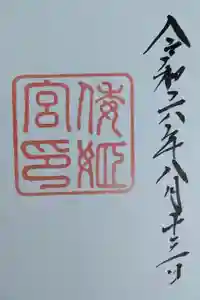 令和元年八月十三日
倭姫
宮印